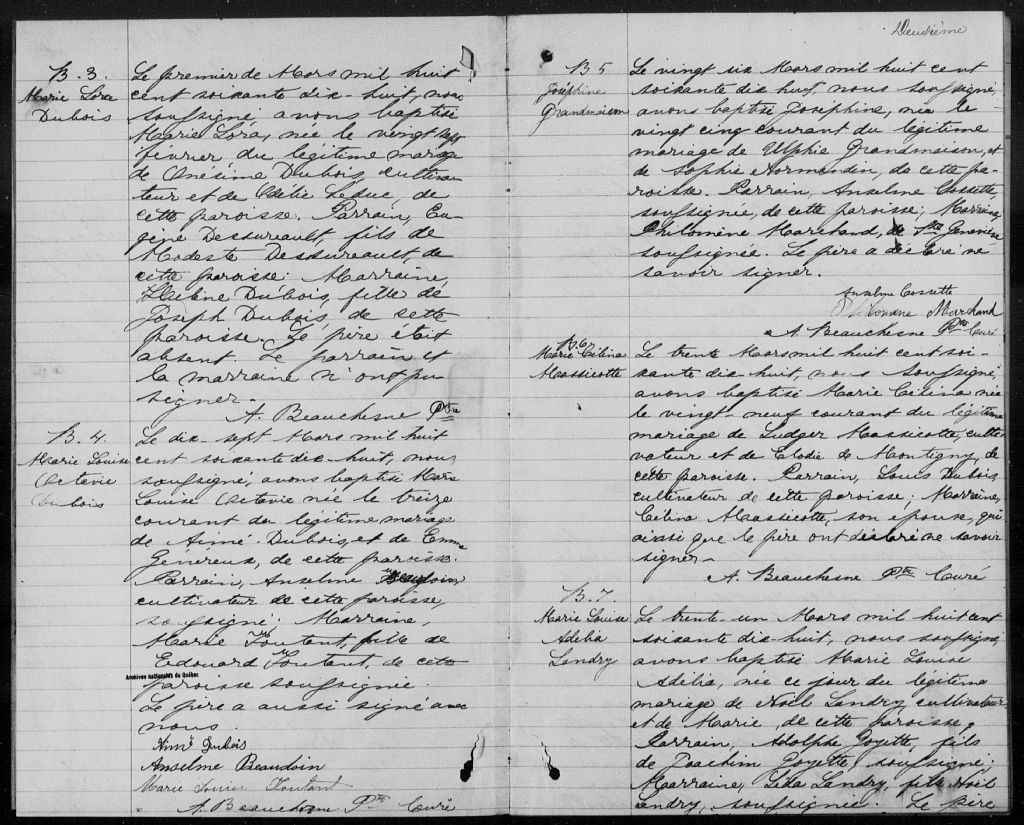 B. 3.
Marie Lora
Dubois
Le premier de Mars mil huit
cent soixante dix-huit, nous
soussigné, avons baptisé
Marie Lora, née le vingt sept
février, du légitime mariage
de Onésime Dubois, cultiva-
teur et de Odélie Leduc, de
cette paroisse. Parrain, Eu-
gène Dessureault, fils de
Modeste Dessureault, de
cette paroisse: Marraine,
Hélène Dubois, fille de
Joseph Dubois, de cette
paroisse. Le père était
absent. Le parrain et
la marraine n'ont pu
signer.
A. Beauchesne Ptre
B. 4.
Marie Louise
Octavie
Dubois
Le dix-sept Mars mil huit
cent soixante dix-huit, nous
soussigné, avons baptisé Marie
Louise Octavie née le treize
courant du légitime mariage
de Aimé Dubois, et de Emma
Généreux, de cette paroisse.
Parrain, Anselme Beaudoin
cultivateur de cette paroisse,
soussigné; Marraine,
Marie Houtant, fille de
Edouard Houtant, de cette
Archives nationales du Québec
paroisse soussignée.
Le père a aussi signé avec
nous.
Aimé Dubois
Anselme Beaudoin
Marie Louise Houtant
A. Beauchesne Ptre Curé
Deuxième
B 5
Joséphine
Grandmaison
Le vingt six Mars mil huit cent
soixante dix huit, nous soussigné,
avons baptisé Joséphine, née le
vingt cinq courant du légitime
mariage de Ulphie Grandmaison, et
de Sophie Normandin, de cette pa-
roisse. Parrain, Anselme Cossette,
soussignée, de cette paroisse; Marraine,
Philomène Marchand, de Ste Geneviève
soussignée. Le père a déclaré ne
savoir signer.
Anselme Cossette
Philomène Marchand
A. Beauchesne Ptre Curé
B. 6
Marie Célina
Massicotte
Le trente Mars mil huit cent soi-
xante dix-huit, nous soussigné,
avons baptisé Marie Célina née
le vingt-neuf courant du légitime
mariage de Ludger Massicotte, culti-
vateur et de Elodie de Montigny, de
cette paroisse. Parrain, Louis Dubois,
cultivateur de cette paroisse; Marraine,
Célina Massicotte, son épouse, qui
ainsi que le père ont déclaré ne savoir
signer.
A. Beauchesne Ptre Curé
B. 7.
Marie Louise
Adélia
Landry
Le trente-un Mars mil huit cent
soixante dix-huit, nous soussigné,
avons baptisé Marie Louise
Adélia, née ce jour du légitime
mariage de Noël Landry, cultivateur
et de Marie, de cette paroisse,
Parrain, Adolphe Goyette, fils
de Joachim Goyette soussigné;
Marraine, Léda Landry, fille Noël
Landry, soussignée. Le père